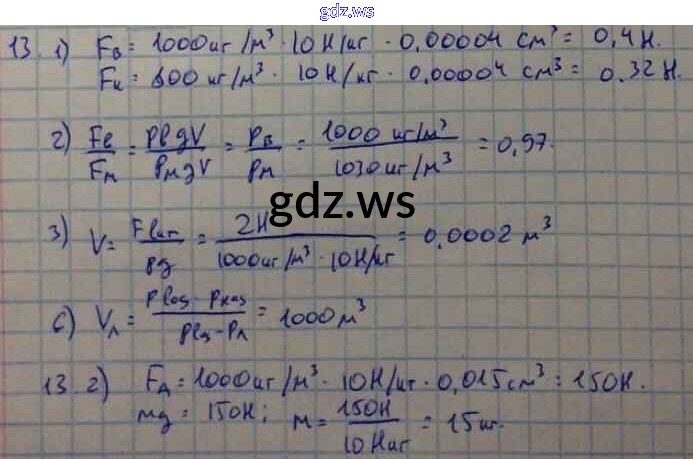 gdz.ws
13. 1) Fв = 1000 кг/м³ · 10 Н/кг · 0,00004 см³ = 0,4 Н.
Fк = 800 кг/м³ · 10 Н/кг · 0,00004 см³ = 0.32 Н.
2) Fв/Fм = ρвgV/ρмgV = ρв/ρм = 1000 кг/м³ / 1030 кг/м³ = 0,97.
gdz.ws
3) V = Fвыт/ρg = 2Н / 1000 кг/м³ · 10 Н/кг = 0,0002 м³
6) Vл = / = 1000 м³
13. 2) FA = 1000 кг/м³ · 10 Н/кг · 0,015 см³ = 150 Н.
mg = 150Н; m = 150Н / 10 Н/кг = 15 кг.